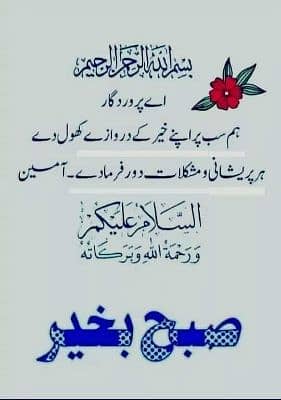 بسم الله الرحمن الرحيم
اے پروردگار
ہم سب پر اپنے خیر کے دروازے کھول دے
ہر پریشانی و مشکلات دور فرما دے۔ آمین
السلام علیکم
ورحمة الله وبركاته
صبح بخیر